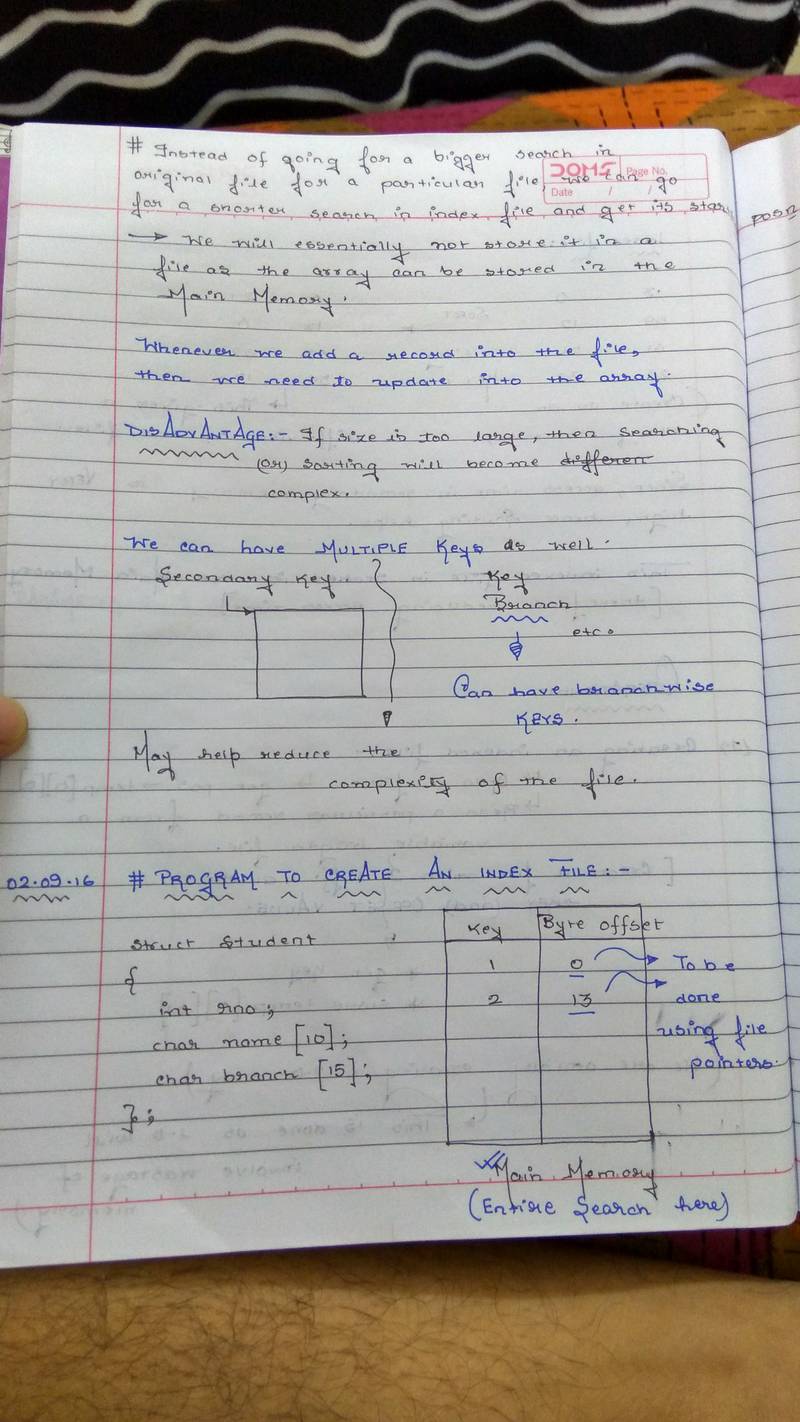 # Instead of going for a bigger search in
DOMS Page No.
Date / /
original file for a particular file, we can go
for a shorter search in index file and get its start
posn
→ We will essentially not store it in a
file as the array can be stored in the
Main Memory.
Whenever we add a record into the file,
then we need to update into the array.
DISADVANTAGE:- If size is too large, then searching
(or) sorting will become differen
complex.
We can have MULTIPLE Keys as well.
Secondary Key
Key
Branch
etc.
Can have branchwise
KEYS.
May help reduce the
complexity of the file.
02.09.16 # PROGRAM TO CREATE AN INDEX FILE:-
struct student
{
int rno;
char name [10];
char branch [15];
};
Key Byte offset
1 0
2 13
To be
done
using file
pointers.
Main Memory
(Entire Search here)